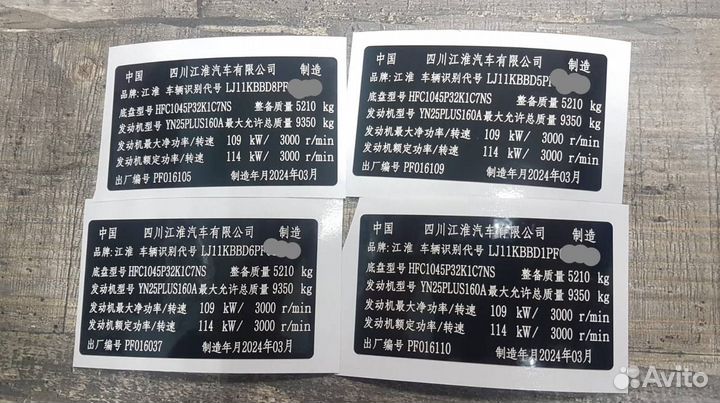 中国 四川江淮汽车有限公司 制造
品牌:江淮 车辆识别代号 LJ11KBBD8PF
底盘型号 HFC1045P32K1C7NS 整备质量 5210 kg
发动机型号 YN25PLUS160A 最大允许总质量 9350 kg
发动机最大净功率/转速 109 kW/ 3000 r/min
发动机额定功率/转速 114 kW/ 3000 r/min
出厂编号 PF016105 制造年月2024年03月
中国 四川江淮汽车有限公司 制造
品牌:江淮 车辆识别代号 LJ11KBBD5PF
底盘型号 HFC1045P32K1C7NS 整备质量 5210 kg
发动机型号 YN25PLUS160A 最大允许总质量 9350 kg
发动机最大净功率/转速 109 kW/ 3000 r/min
发动机额定功率/转速 114 kW/ 3000 r/min
出厂编号 PF016109 制造年月2024年03月
中国 四川江淮汽车有限公司 制造
品牌:江淮 车辆识别代号 LJ11KBBD6PF
底盘型号 HFC1045P32K1C7NS 整备质量 5210 kg
发动机型号 YN25PLUS160A 最大允许总质量 9350 kg
发动机最大净功率/转速 109 kW/ 3000 r/min
发动机额定功率/转速 114 kW/ 3000 r/min
出厂编号 PF016037 制造年月2024年03月
中国 四川江淮汽车有限公司 制造
品牌:江淮 车辆识别代号 LJ11KBBD1PF
底盘型号 HFC1045P32K1C7NS 整备质量 5210 kg
发动机型号 YN25PLUS160A 最大允许总质量 9350 kg
发动机最大净功率/转速 109 kW/ 3000 r/min
发动机额定功率/转速 114 kW/ 3000 r/min
出厂编号 PF016110 制造年月2024年03月
Avito